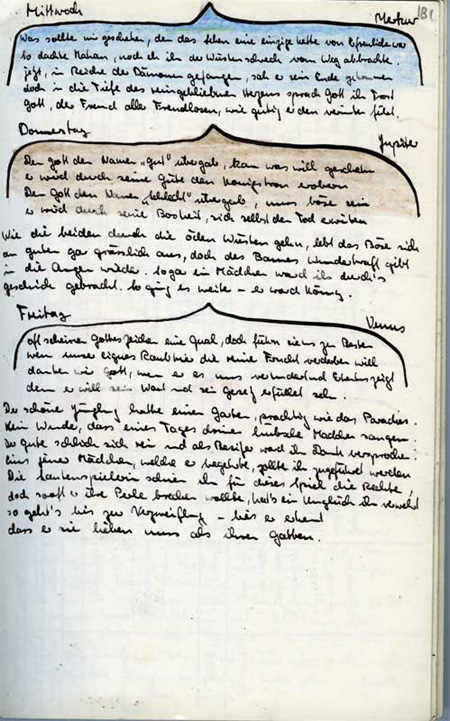 Mittwoch
Merkur
181
Was sollte ihm geschehen, den das Leben eine einzige Kette von
So dachte Mahan, noch eh ihn der Wüstenschreck vom Weg abbrachte.
jetzt, im Reiche der Dämonen gefangen, sah er sein Ende gekommen
doch in die Tiefe des reingebliebnen Herzens sprach Gott ihm Trost
Gott, der Freund aller Freundlosen, wie gütig er den
Donnerstag
Jupiter
Dem Gott den Namen „gut" übergab, kann was will geschehn
er wird durch seine Güte den Königsthron erobern
Dem Gott den Namen „schlecht" übergab, muss böse sein
er wird durch seine Bosheit, sich selbst den Tod
Wie die beiden durch die öden Wüsten gehn, lebt das Böse sich
am guten gar grässlich aus, doch des Baumes Wunderkraft gibt
ihm die Augen wieder. Sogar ein Mädchen ward ihm durch's
gebracht. So ging es weiter – er ward König.
Freitag
Venus
oft scheinen Gottes Zeichen eine Qual, doch führn sie uns zum Besten
wenn unser eignes die reine Frucht verderben will
danken wir Gott, wenn er es uns verhindert und zeigt
denn er will sein Wort und sein Gesetz erfüllet sehn.
Der schöne Jüngling hatte einen Garten, prächtig wie das Paradies.
Kein Wunder, dass eines Tages drinnen Mädchen sangen.
Der gute schlich sich rein und als Besitzer ward ihm Dank versprochen:
Eins jener Mädchen, welche er begehrte, sollte ihm zugeführet werden
Die Lautenspielerin schien ihm für dieses Spiel die Rechte,
doch sooft er ihre Perle brechen wollte, hat's ein Unglück ihm verwehrt
so geht's bis zur Verzweiflung – bis er erkennt
dass er sie lieben muss als ihren Gatten.